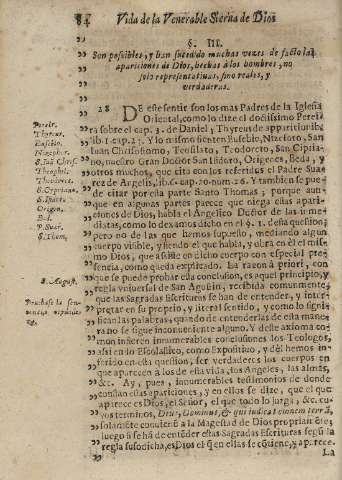 84 Vida de la Venerable Sierva de Dios
§. III.
Son possibles, y han sucedido muchas vezes de facto las
apariciones de Dios, hechas à los hombres, no
solo representativas, sino reales, y
verdaderas.
28 DE este sentir son los mas Padres de la Iglesia
Oriental, como lo dize el doctissimo Perei-
ra sobre el cap. 3. de Daniel, Thyreus de apparitionib.
lib. 1. cap. 21. Y lo mismo sienten Eusebio, Nizeforo, San
Juan Chrisostomo, Teofilato, Teodoreto, San Cipria-
no, nuestro Gran Doctor San Isidoro, Origenes, Beda, y
otros muchos, que cita con los referidos el Padre Sua-
rez de Angelis, lib. 6. cap. 20. num. 26. Y tambien se pue-
de citar por esta parte Santo Thomas; porque aun-
que en algunas partes parece que niega estas apari-
ciones de Dios, habla el Angelico Doctor de las inme-
diatas, como lo dexamos dicho en el §. 1. desta question;
pero no de las que hemos supuesto, mediando algun
cuerpo visible, y siendo el que habla, y obra en èl el mis-
mo Dios, que assiste en dicho cuerpo con especial pre-
sencia, como queda explicado. La razon à priori, con
que se puede probar esta conclusion, es aquel principio, y
regla vniversal de San Agustin, recibida comunmente,
que las Sagradas Escrituras se han de entender, y inter-
pretar en su proprio, y literal sentido, y como lo signi-
fican las palabras, quando de entenderlas de esta mane-
ra no se sigue inconueniente alguno. Y deste axioma co-
mun infieren innumerables conclusiones los Teologos,
assi en lo Escolastico, como Expositiuo, y dèl hemos in-
ferido en esta question, ser verdaderos los cuerpos en
que aparecen à los de esta vida, los Angeles, las almas,
&c. Ay, pues, innumerables testimonios de donde
constan estas apariciones, y en ellos se dize, que el que
aparece es Dios, el Señor, el que todo lo juzga, &c. cu-
yos terminos, Deus, Dominus, & qui iudicat omnem terrã,
solamente conuienen à la Magestad de Dios propriamẽte;
luego si se hà de entender estas Sagradas Escrituras segũ la
regla susodicha, es Dios el q̃ en ellas se cõtiene, y aparece.
La
Pereir.
Thyreus.
Eusebio.
Nizephor.
S. Juã Chris.
Theophil.
Theodoret.
S. Cyprian.
S. Isidor.
Origen.
Bed.
P. Suar.
S. Thom.
S. August.